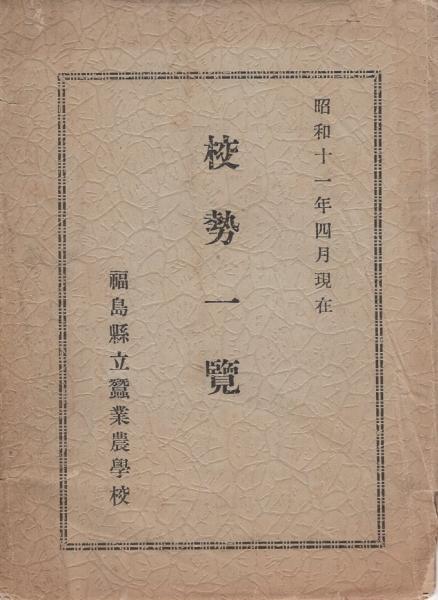 昭和十一年四月現在
校勢一覽
福島縣立蠶業農學校